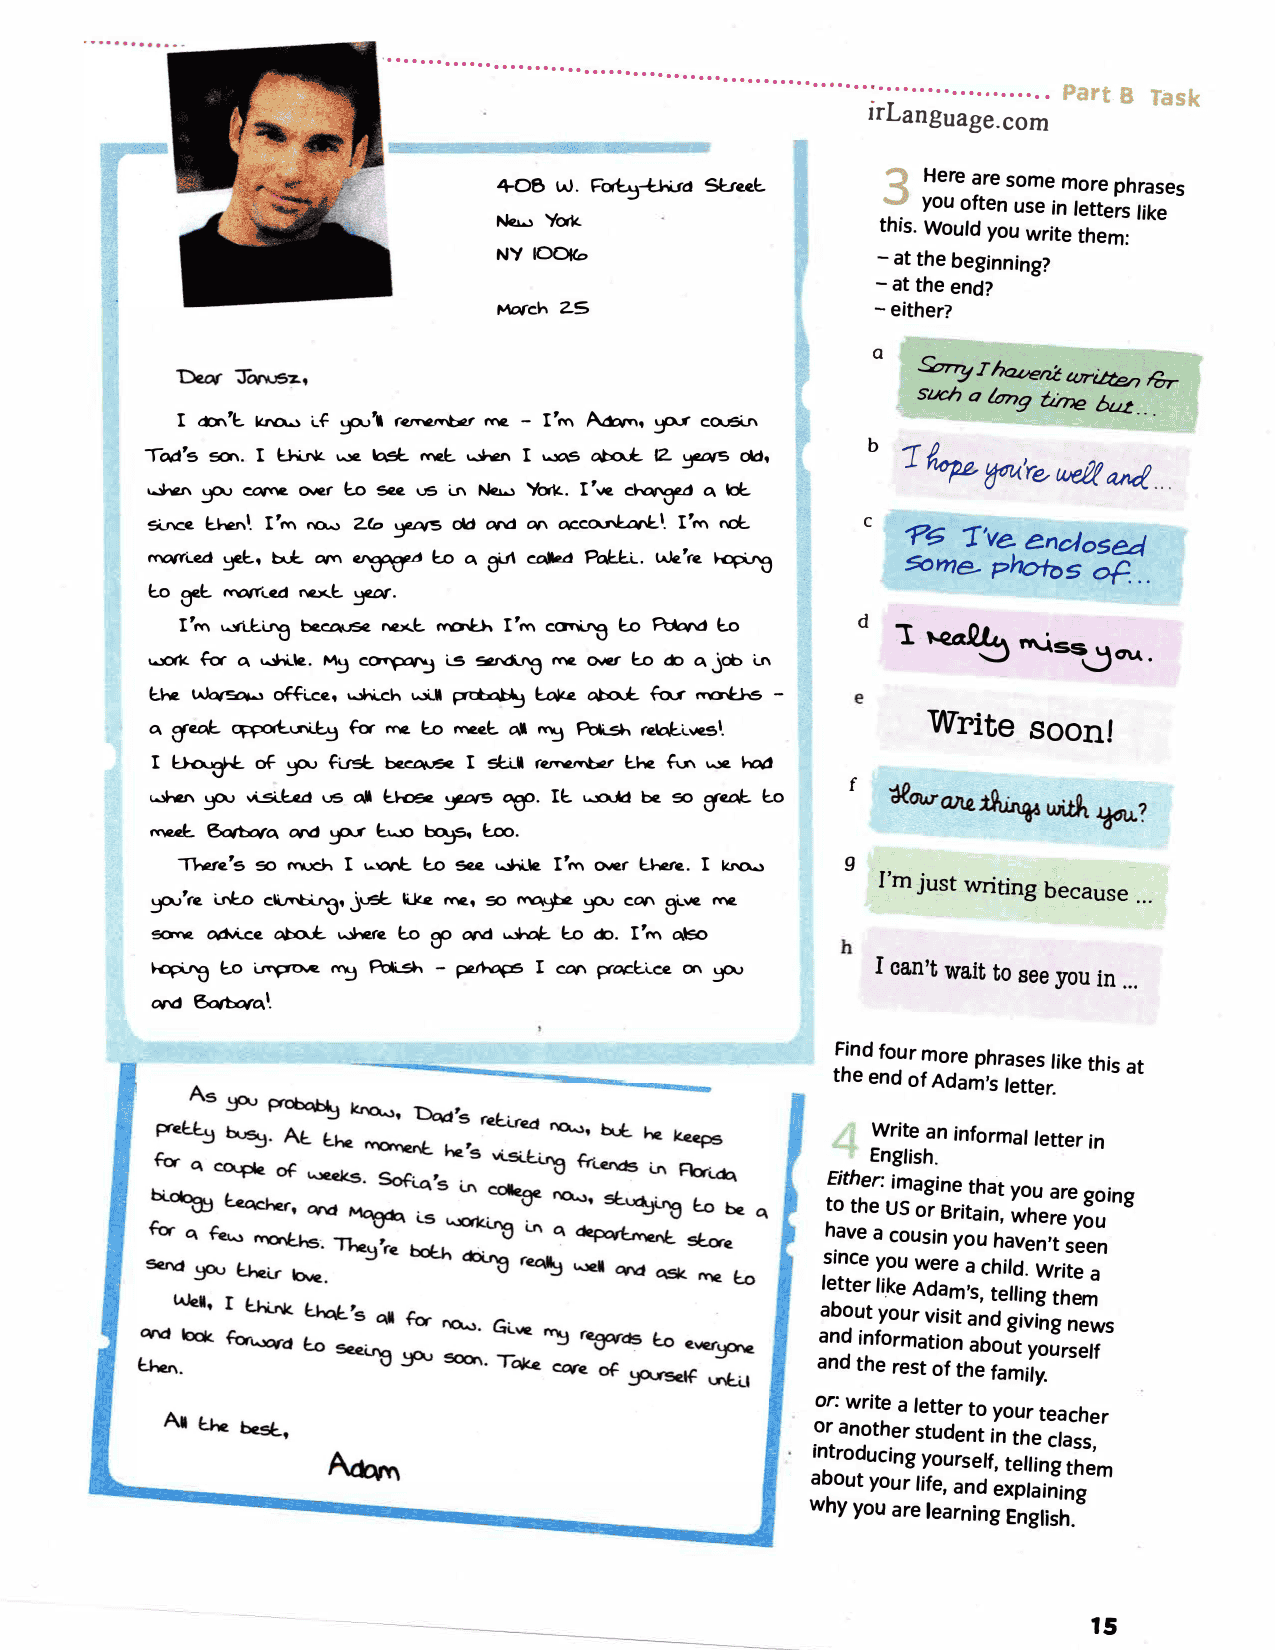 Part B Task
irLanguage.com
408 W. Forty-third Street
New York
NY 10016
March 25
Dear Janusz,
I don't know if you'll remember me - I'm Adam, your cousin
Tad's son. I think we last met when I was about 12 years old,
when you came over to see us in New York. I've changed a lot
since then! I'm now 26 years old and an accountant! I'm not
married yet, but am engaged to a girl called Patti. We're hoping
to get married next year.
I'm writing because next month I'm coming to Poland to
work for a while. My company is sending me over to do a job in
the Warsaw office, which will probably take about four months -
a great opportunity for me to meet all my Polish relatives!
I thought of you first because I still remember the fun we had
when you visited us all those years ago. It would be so great to
meet Barbara and your two boys, too.
There's so much I want to see while I'm over there. I know
you're into climbing, just like me, so maybe you can give me
some advice about where to go and what to do. I'm also
hoping to improve my Polish - perhaps I can practice on you
and Barbara!
As you probably know, Dad's retired now, but he keeps
pretty busy. At the moment he's visiting friends in Florida
for a couple of weeks. Sofia's in college now, studying to be a
biology teacher, and Magda is working in a department store
for a few months. They're both doing really well and ask me to
send you their love.
Well, I think that's all for now. Give my regards to everyone
and look forward to seeing you soon. Take care of yourself until
then.
All the best,
Adam
3 Here are some more phrases
you often use in letters like
this. Would you write them:
– at the beginning?
– at the end?
– either?
a Sorry I haven't written for
such a long time but...
b I hope you're well and...
c PS I've enclosed
some photos of...
d I really miss you.
e Write soon!
f How are things with you?
g I'm just writing because ...
h I can't wait to see you in ...
Find four more phrases like this at
the end of Adam's letter.
4 Write an informal letter in
English.
Either: imagine that you are going
to the US or Britain, where you
have a cousin you haven't seen
since you were a child. Write a
letter like Adam's, telling them
about your visit and giving news
and information about yourself
and the rest of the family.
or: write a letter to your teacher
or another student in the class,
introducing yourself, telling them
about your life, and explaining
why you are learning English.
15